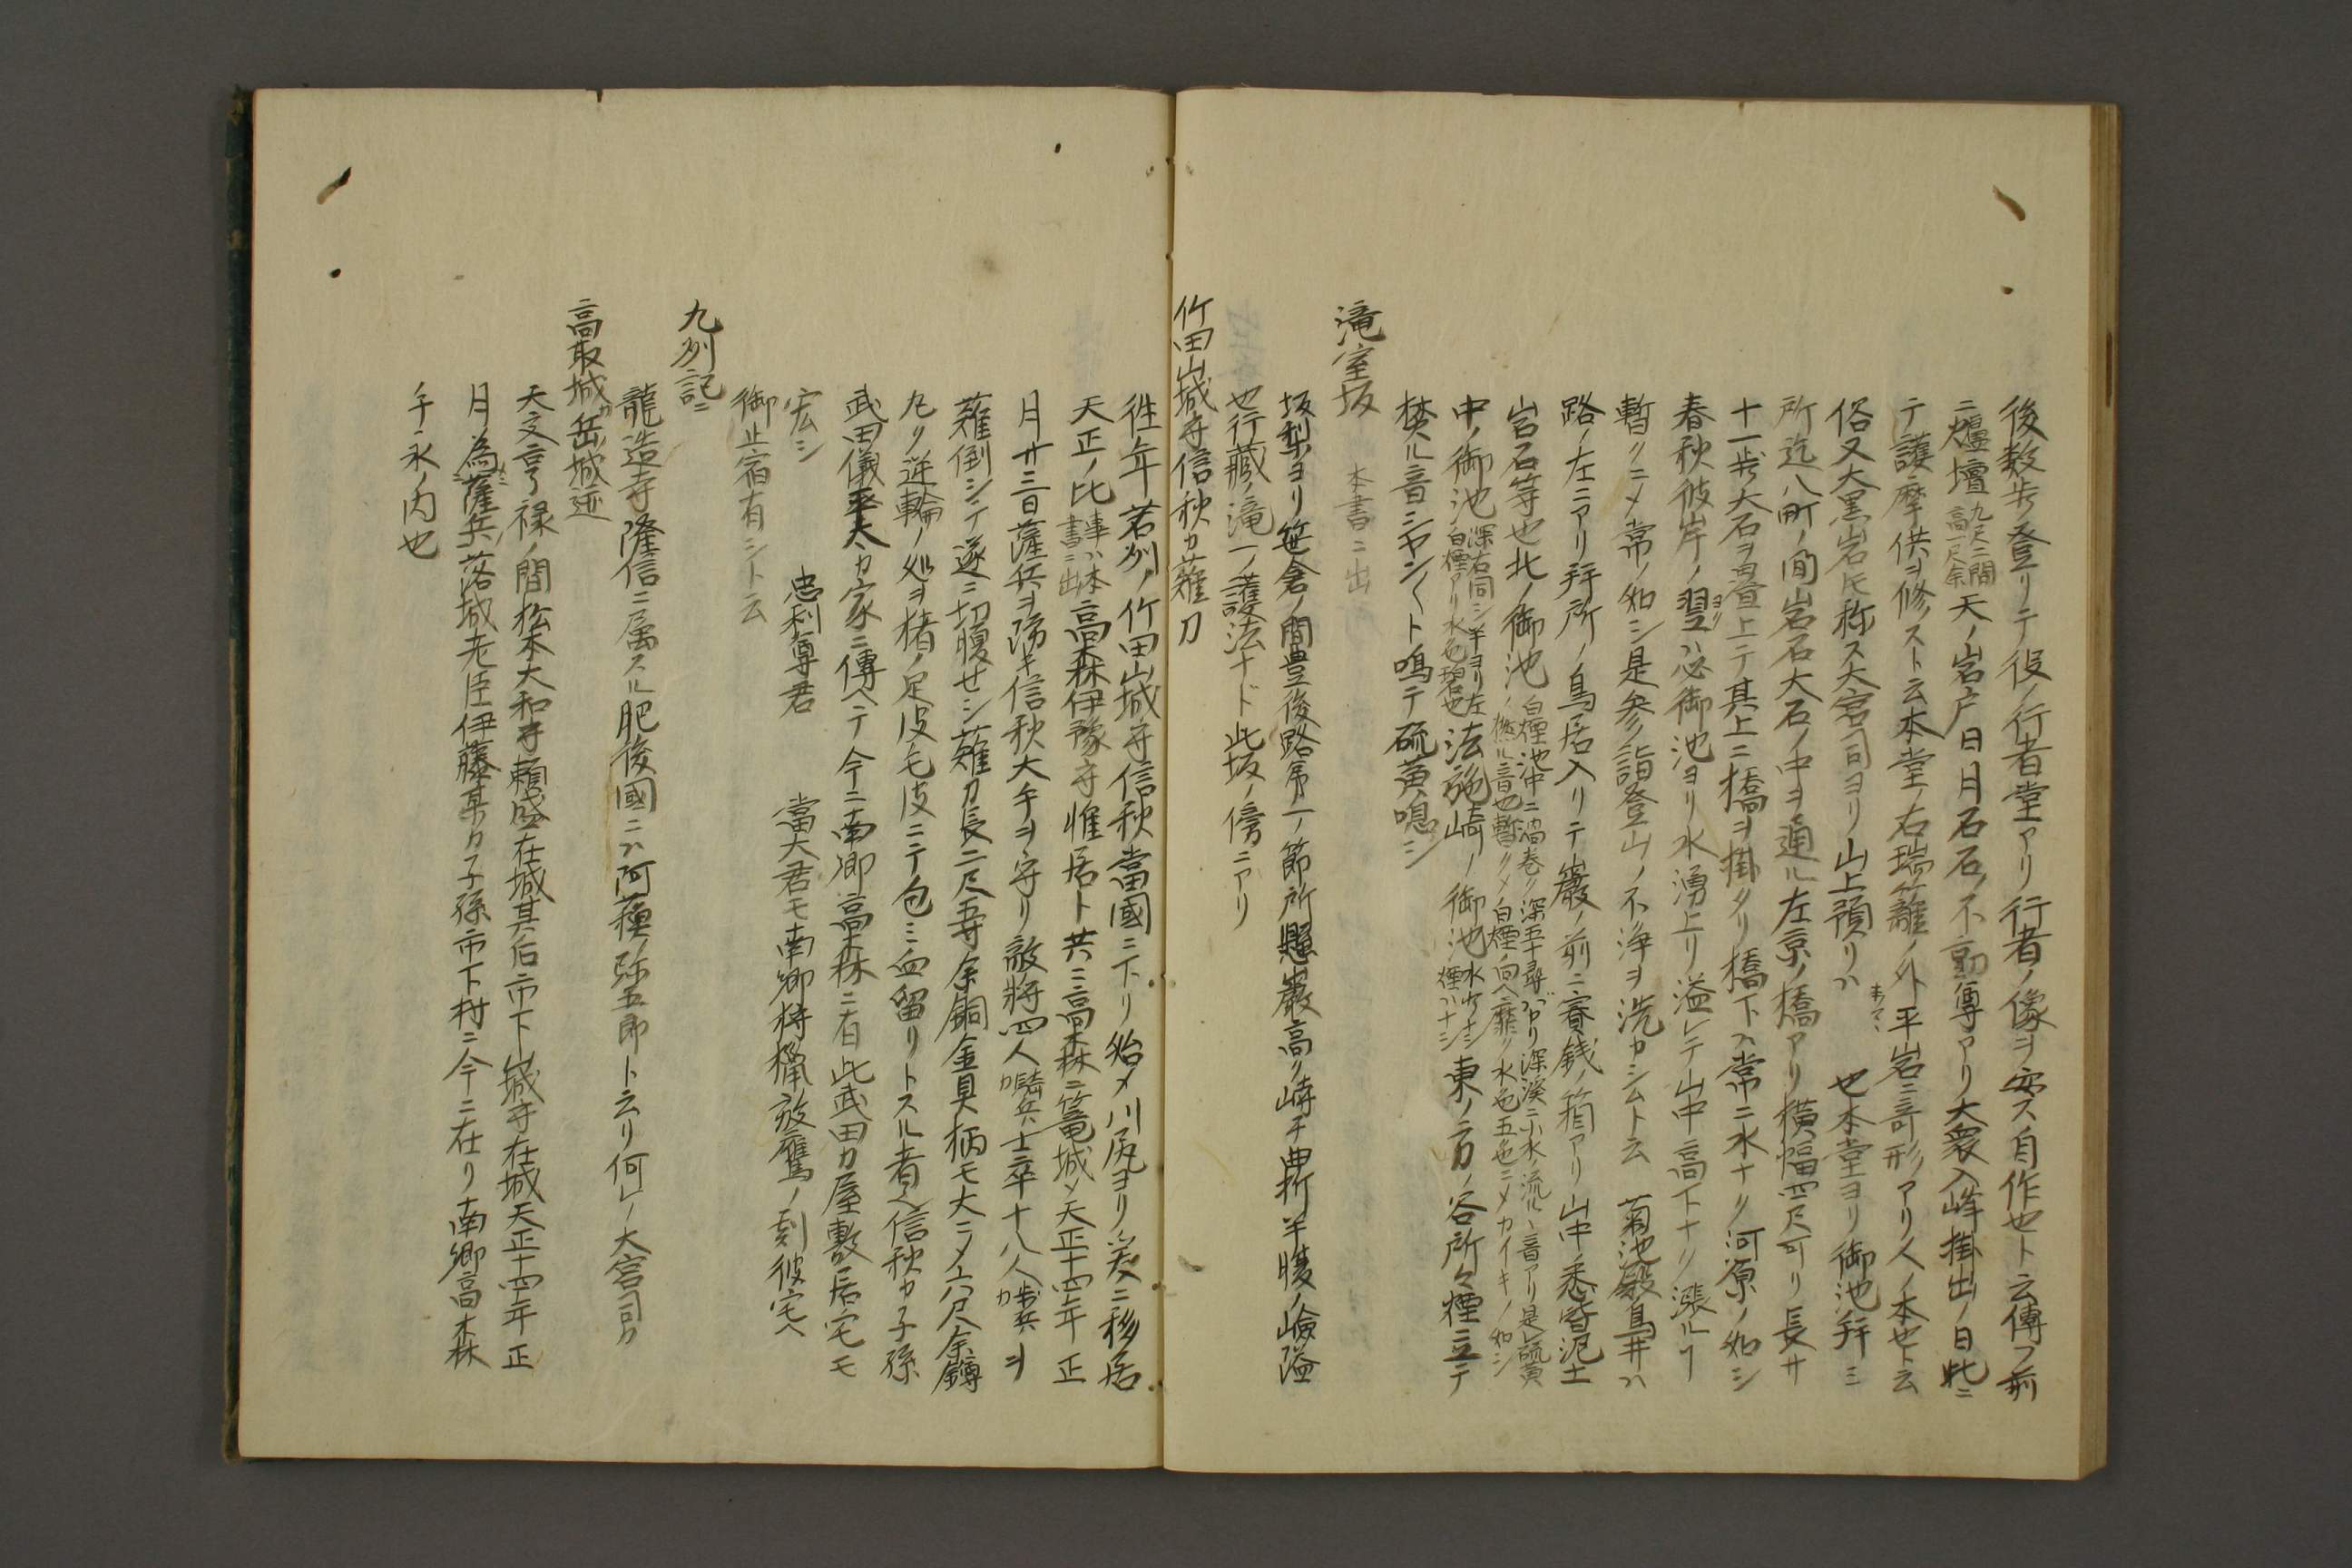 後数歩登リテ役ノ行者堂アリ行者ノ像ヲ安ス自作也ト云傳フ前
ニ爐壇九尺二間高一尺余天ノ岩戸日月石石ノ不動尊アリ大衆入峰掛出ノ日此ニ
テ護摩供ヲ修スト云本堂ノ右瑞籬ノ外平岩ニ奇形ノアリ人ノ本也ト云
俗又大黒岩氏称ス大宮司ヨリノ山上預リハ本ノマヽ也本堂ヨリ御池拝ミ
所迄八町ノ間岩石大石ノ中ヲ通ル左京ノ橋アリ横幅四尺可リ長サ
十一歩大石ヲ畳上テ其上ニ橋ヲ掛タリ橋下ハ常ニ水ナク河原ノ如シ
春秋彼岸ノ翌ヨリハ必御池ヨリ水湧上リ溢レテ山中高下ナク漲ルヿ
暫クニメ常ノ如シ是参詣登山ノ不浄ヲ洗カシムト云菊池殿鳥井ハ
路ノ左ニアリ拝所ノ鳥居入リテ巌ノ前ニ賽銭ノ箱アリ山中ノ悉皆泥土
岩石等也北ノ御池白煙池中ニ渦巻ク深五十尋バカリ深渓ニ小水ノ流ルヽ音アリ是硫黄ノ燃ル音也暫クメ白煙ノ向ヘ靡ク水色五色ニメカイキノ如シ
中ノ御池深右同シ半ヨリ左ノ白煙アリ水色碧也法施崎ノ御池水少キシ煙ハナシ東ノ方ノ谷所々煙立テ
焚ル音シヤン〱ト鳴テ硫黄嗅シ
滝室坂 本書ニ出
坂梨ヨリ笹倉ノ間豊後路第一ノ節所懸巌高ク崎チ曲折羊膓ノ嶮隘
也行藏ノ滝一ノ護法ナド此坂ノ傍ニアリ
竹田山城守信秋カ薙刀
徃年若刕ノ竹田山城守信秋當國ニ下リ始メ川尻ヨリ爰ニ移居
天正ノ比事ハ本書ニ出高森伊豫守惟居ト共ニ高森ニ篭城ソ天正十四年正
月廿三日薩兵ヲ防キ信秋大手ヲ守リ敵将四人騎兵カ士卒十八人歩兵カヲ
薙倒シテ遂ニ切腹せシ薙刀長二尺五寸余銅金具柄モ大ニメ六尺余鐏
九リ逆輪ノ処ヲ猪ノ足皮毛皮ニテ包ミ血留リトスル者也信秋カ子孫
武田儀平太カ家ニ傳ヘテ今ニ南郷高森ニ有此武田カ屋敷居宅モ
宏シ 忠利尊君 當大君モ南郷狩獵放鷹ノ刻彼宅ヘ
御止宿有シト云
九刕記ニ
龍造寺隆信ニ属スル肥後國ニハ阿蘓ノ弥五郎ト云リ何レノ大宮司カ
高取城カ岳ノ城迹
天文享禄ノ間松本大和守頼盛在城其后市下山城守在城天正十四年正
月為ニ薩兵ノ落城老臣伊藤某カ子孫市下村ニ今ニ在リ南郷高森
手永ノ内也